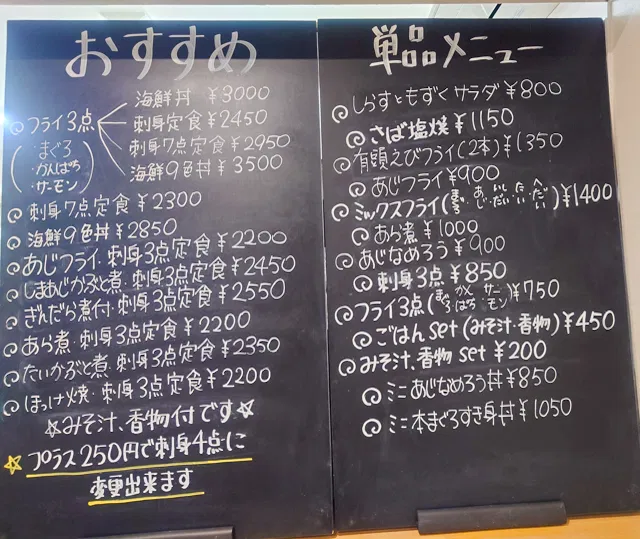 おすすめ
海鮮丼 ¥3000
フライ3点 刺身定食 ¥2450
(まぐろ 刺身7点定食 ¥2950
・かんぱち 海鮮9色丼 ¥3500
・サーモン)
刺身7点定食 ¥2300
海鮮9色丼 ¥2850
あじフライ・刺身3点定食 ¥2200
しまあじかぶと煮・刺身3点定食 ¥2450
ぎんだら煮付・刺身3点定食 ¥2550
あら煮・刺身3点定食 ¥2200
たいかぶと煮・刺身3点定食 ¥2350
ほっけ焼・刺身3点定食 ¥2200
☆みそ汁、香物付です☆
☆プラス250円で刺身4点に
変更出来ます
単品メニュー
しらすともずくサラダ ¥800
さば塩焼 ¥1150
有頭えびフライ(2本) ¥1350
あじフライ ¥900
ミックスフライ ¥1400
あら煮 ¥1000
あじなめろう ¥900
刺身3点 ¥850
フライ3点(まぐろ・かんぱち・サーモン) ¥750
ごはんset(みそ汁・香物) ¥450
みそ汁、香物set ¥200
ミニあじなめろう丼 ¥850
ミニ本まぐろすき身丼 ¥1050